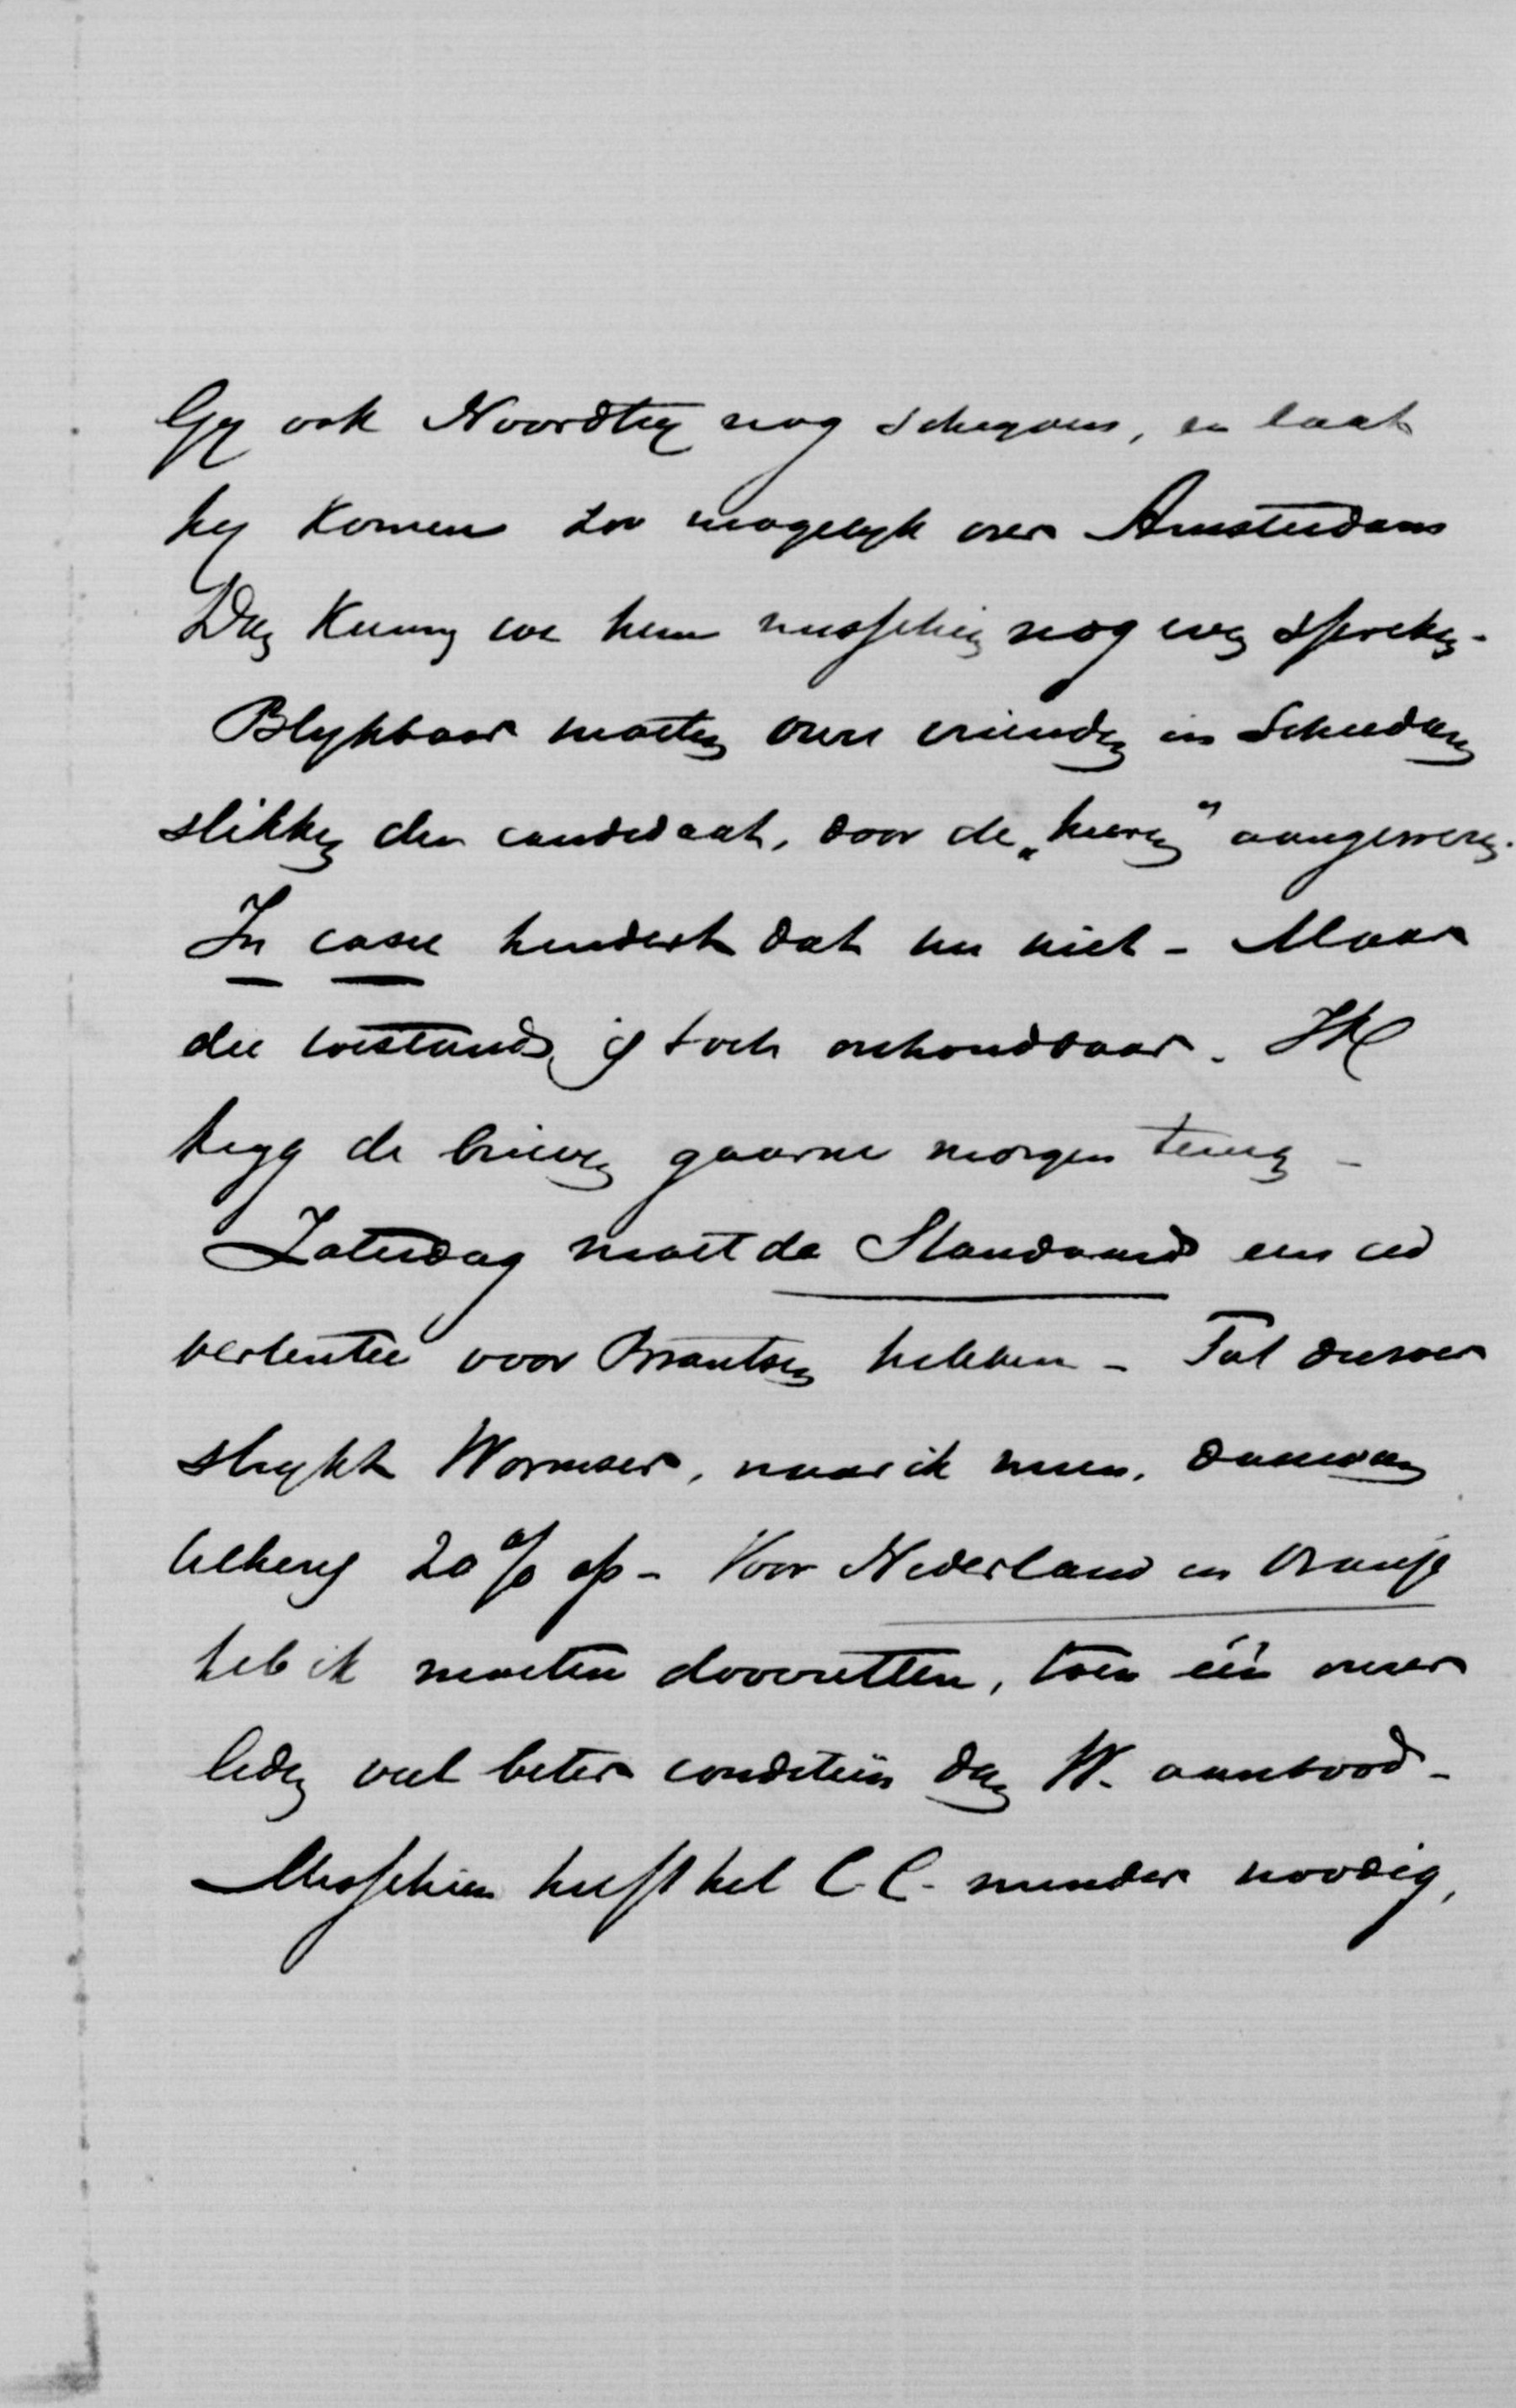 Gij ook Noordtzij nog schrijven, en laat
hij komen zoo mogelijk over Amsterdam
Dan kunnen we hem misschien nog even spreken.
Blijkbaar moeten onze vrienden in Schiedam
slikken den candidaat, door de „heeren" aangewezen.
In casu hindert dat nu niet - Maar
die toestand is toch onhoudbaar. Ik
kryg de brieven gaarne morgen terug -
Zaterdag moet de Standaard een ad
vertentie voor Brantsen hebben - Tot dusver
strykt Wormser, naar ik meen, daarvan
telkens 20 % op - Voor Nederland en Oranje
heb ik moeten doorzetten, toen één onzer
leden veel beter conditiën dan W. aanbood -
Misschien heeft het C.C. minder noodig,